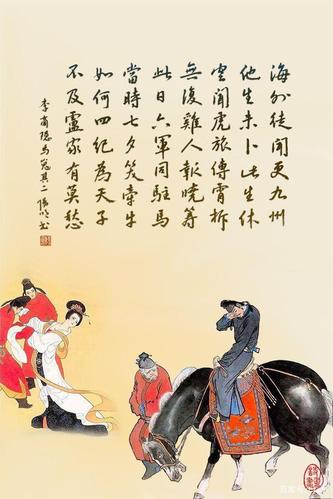 海外徒聞更九州
他生未卜此生休
空聞虎旅傳宵柝
無復雞人報曉籌
此日六軍同駐馬
當時七夕笑牽牛
如何四紀為天子
不及盧家有莫愁
李商隱馬嵬其二